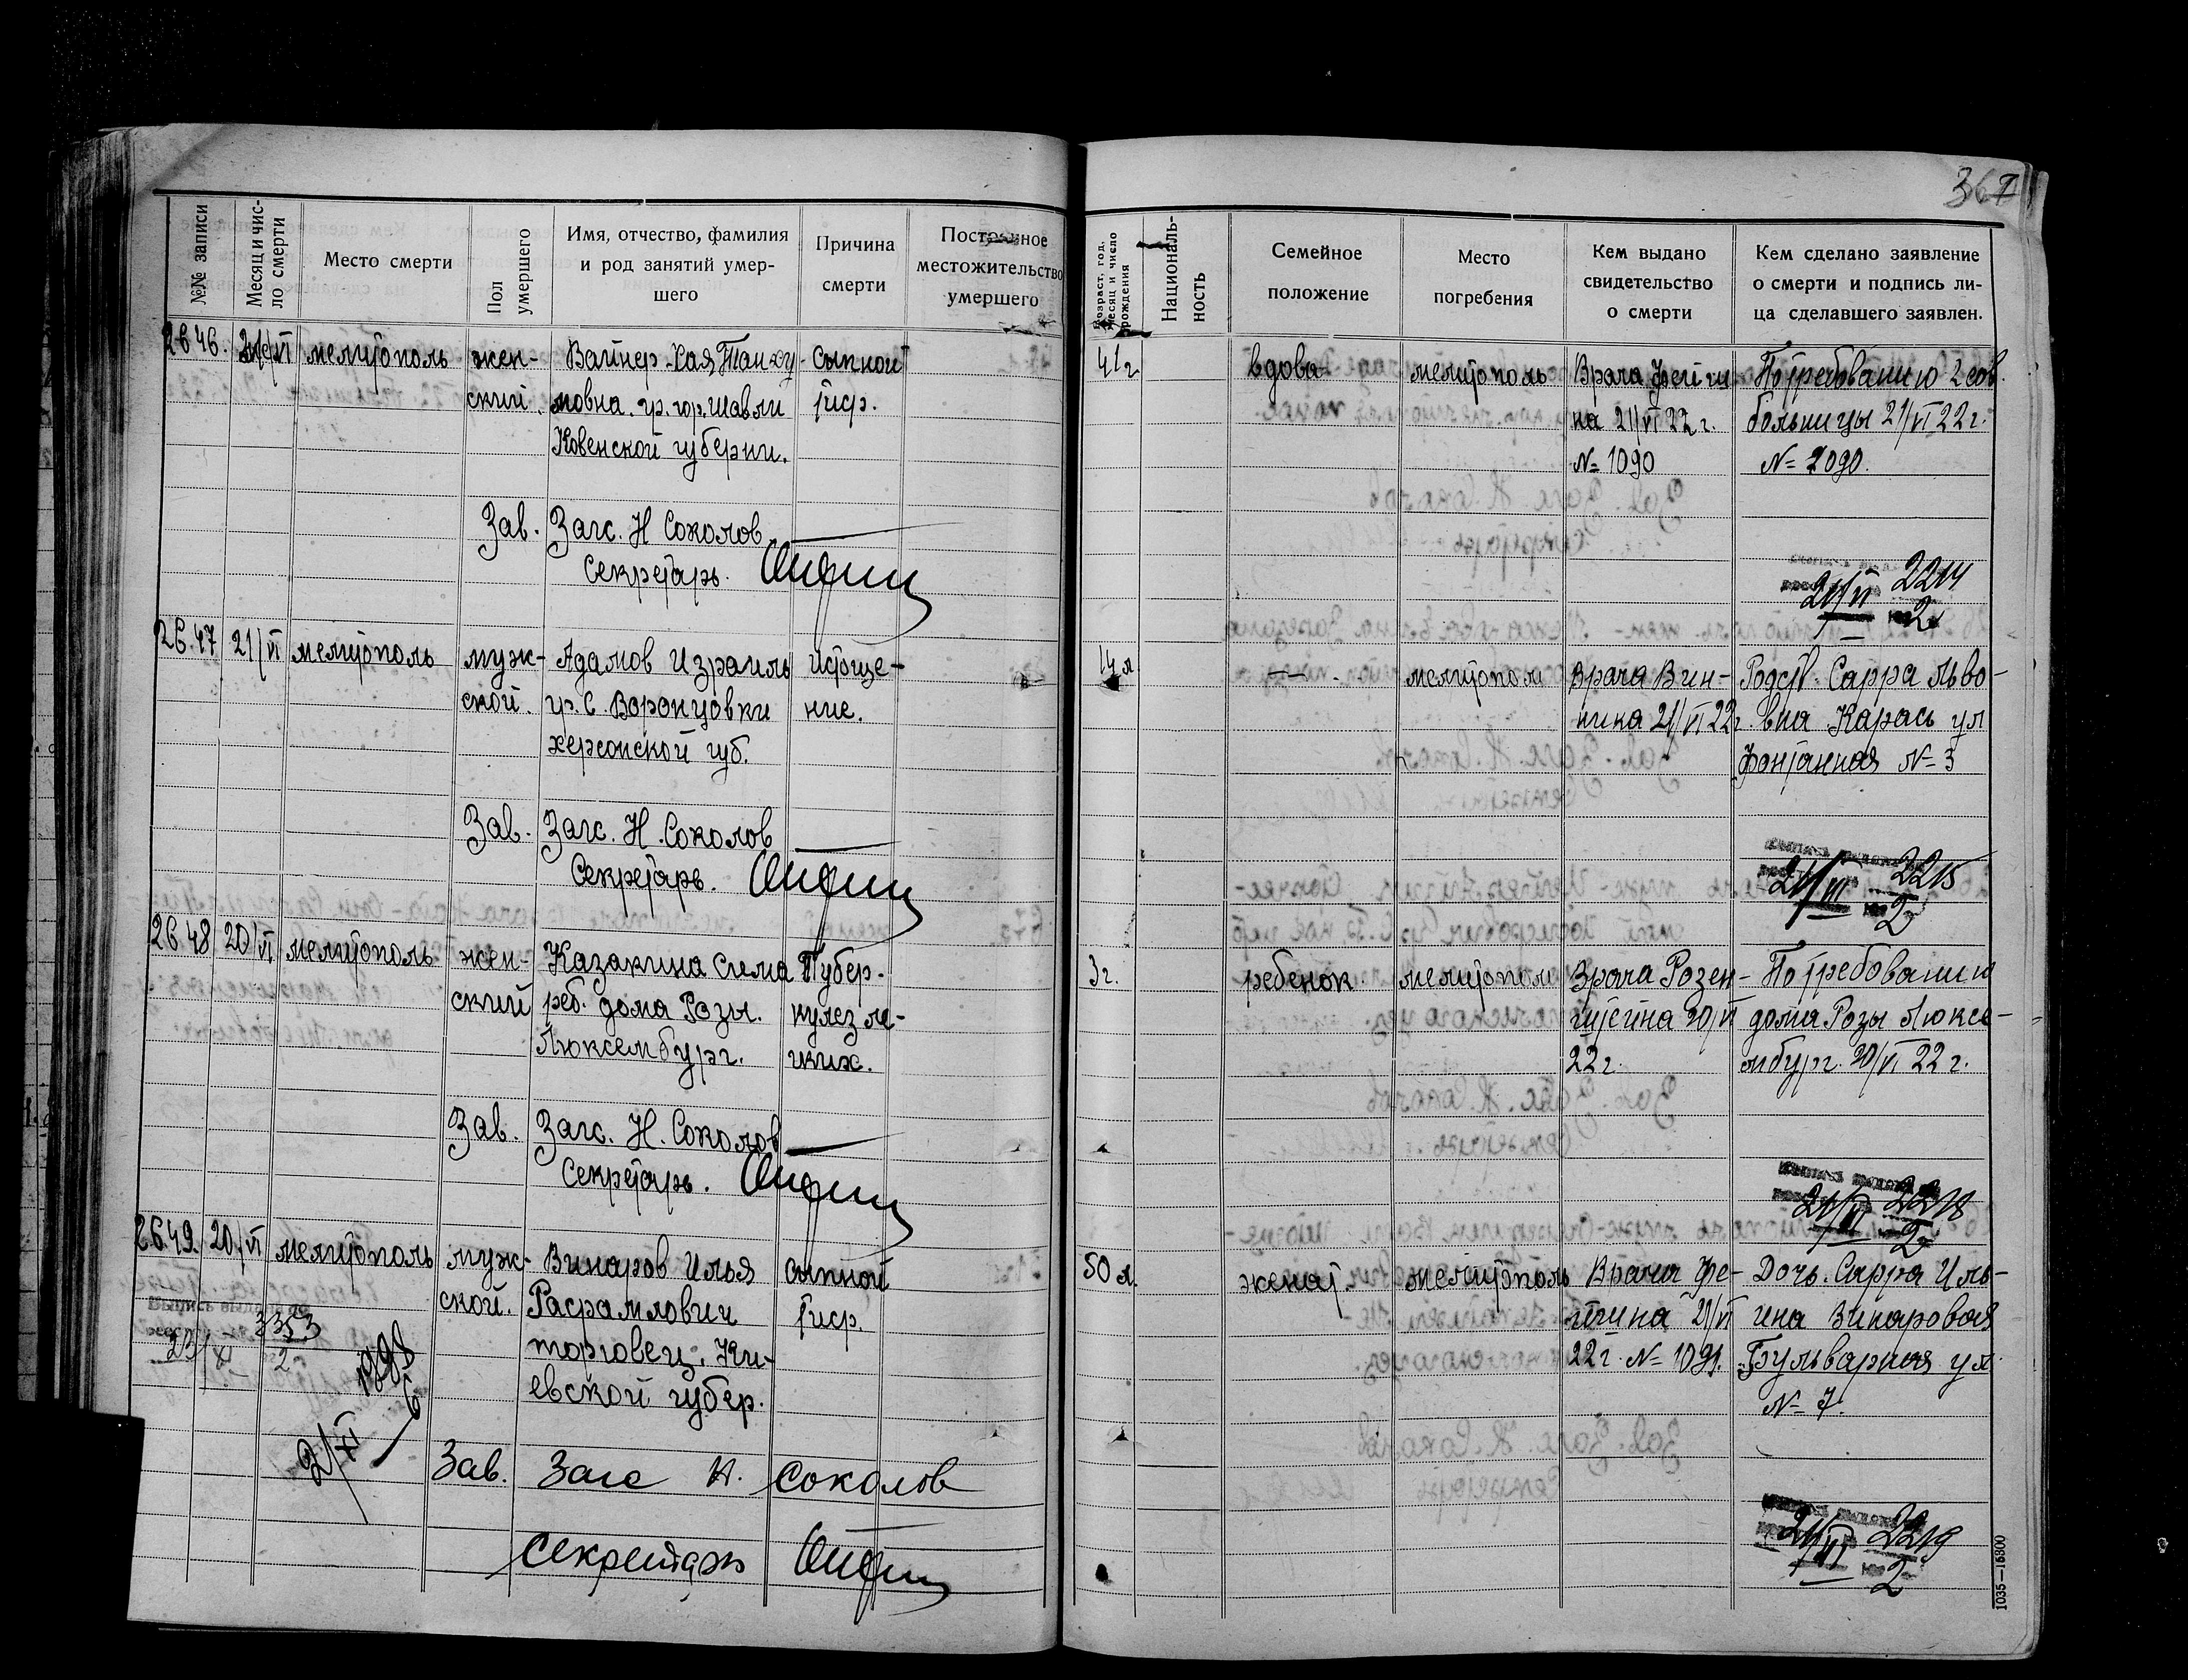 367
№№ записи
Месяц и чис-
ло смерти
Место смерти
Пол
умершего
Имя, отчество, фамилия
и род занятий умер-
шего
Причина
смерти
Постоянное
местожительство
умершего
Возраст, год,
месяц и число
рождения
Националь-
ность
Семейное
положение
Место
погребения
Кем выдано
свидетельство
о смерти
Кем сделано заявление
о смерти и подпись ли-
ца сделавшего заявлен.
2646. мелитополь жен- Вайнер Хая Танху- Сыпной 41 г вдова мелитополь Врача Фейги- По требованию 2 сов.
ский. мовна. гр. гор. Шавли тиф. на 21/VI 22 г. больницы 21/VI 22 г.
Ковенской губерни. №1090 № 2090.
Зав. Загс. Н Соколов
Секретарь.
21/VI 2214
2
2647 21/VI мелитополь муж- Адамов Израиль Истоще- 14 л — мелитопол Врача Вин- Родств. Сарра Льво-
ской. гр. С. Воронцовки ние. ника 21/VI 22 г. вна Карась ул
херсонской губ. Фонтанная № 3
Зав. Загс. Н. Соколов
Секретарь.
21/VI 2215
2
2648 20/VI мелитополь жен- Казакина Сима Тубер- 3 г. ребенок мелитопол Врача Розен- По требованию
ский реб. дома Розы. кулез ле- 20/VI дома Розы Люксе-
Люксембург. гких. 22 г. мбург. 20/VI 22 г.
Зав. Загс. Н. Соколов
Секретарь.
21/VI 2218
2
2649. 20/VI мелитополь муж- Винаров Илья сыпной 50 л. женат. мелитополь Врача Фе- Дочь. Сарра Иль-
ской. тиф. 21/VI ина Винаровая
торговец. Ки- 22 г. № 1091. Бульварная ул.
евской губер. № 7.
Выпись выдана
23/XI 3353
2
2/XI 1998
6
Зав. Загс Н. Соколов
Секретарь
21/VI 2219
2
1035—15800